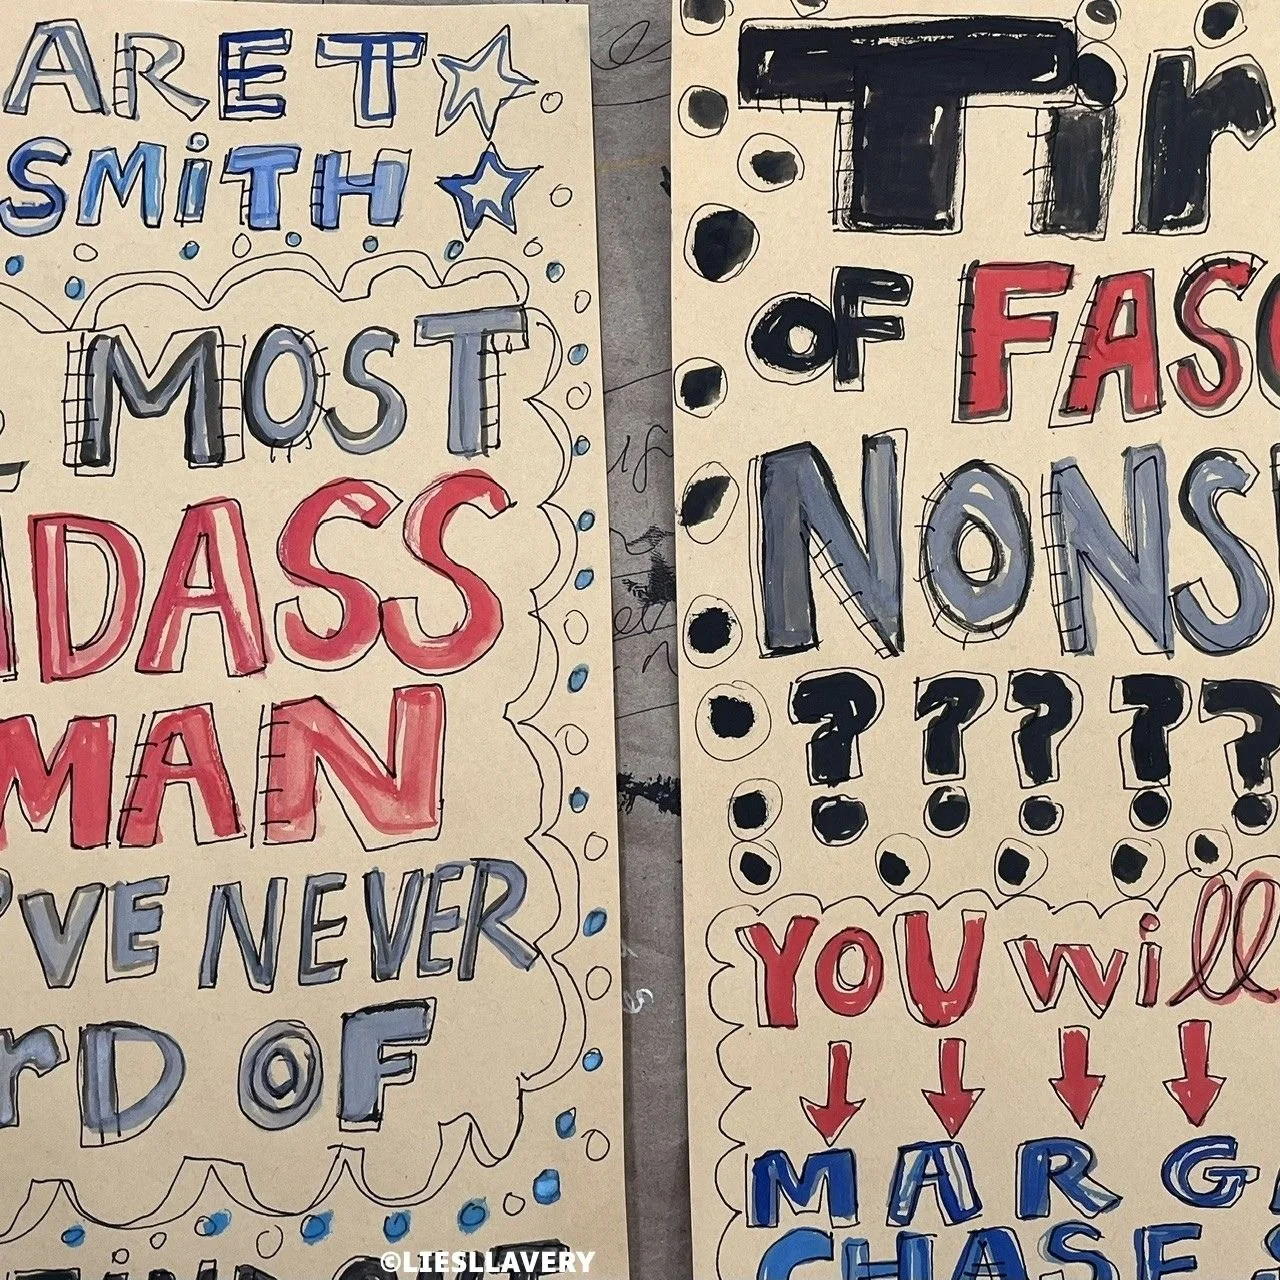 ARET
SMiTH
MOST
DASS
MAN
'VE NEVER
rD OF
Tir
OF FASC
NONS
?????
YOU will
MARG
CHASE S
©LIESLLAVERY